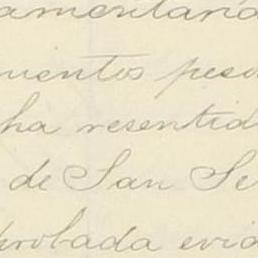 amentaria
uientos pes
ha resentid
de San Se
probada evid